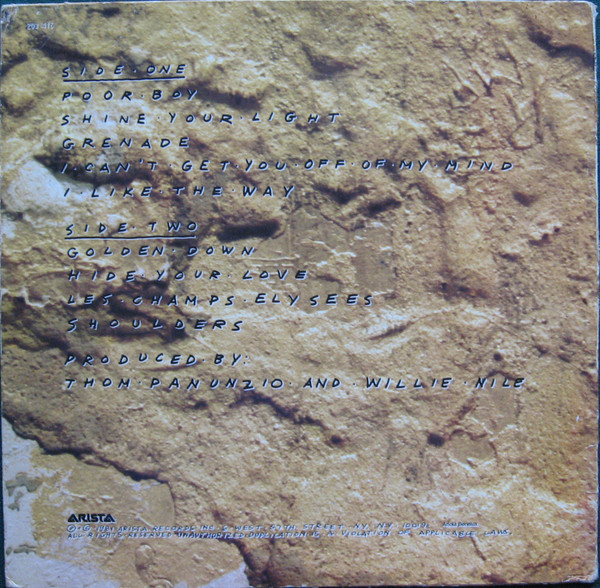 SIDE·ONE
POOR·BOY
SHINE·YOUR·LIGHT
GRENADE
I·CAN'T·GET·YOU·OFF·OF·MY·MIND
I·LIKE·THE·WAY
SIDE·TWO
GOLDEN·DOWN
HIDE·YOUR·LOVE
LES·CHAMPS·ELYSEES
SHOULDERS
PRODUCED·BY:
THOM·PANUNZIO·AND·WILLIE·NILE
ARISTA
1981 ARISTA RECORDS INC. 6 WEST 57TH STREET, NY. NY. 10019.
ALL RIGHTS RESERVED UNAUTHORIZED DUPLICATION IS A VIOLATION OF APPLICABLE LAWS.